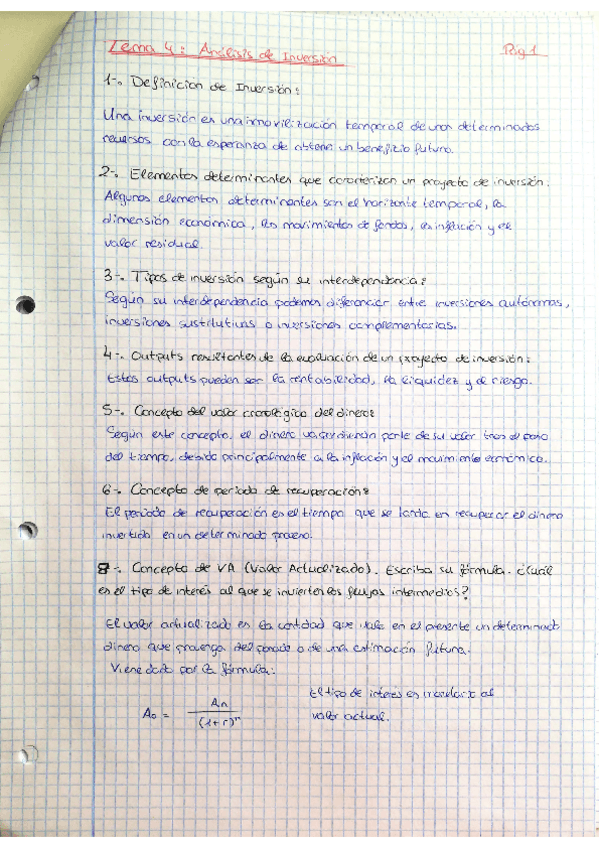 Tema 4: Análisis de Inversión
Pág 1
1-. Definición de Inversión:
Una inversión es una inmovilización temporal de unos determinados
recursos con la esperanza de obtener un beneficio futuro.
2-. Elementos determinantes que caracterizan un proyecto de inversión.
Algunos elementos determinantes son el horizonte temporal, la
dimensión económica, los movimientos de fondos, la inflación y el
valor residual.
3-. Tipos de inversión según su interdependencia:
Según su interdependencia podemos diferenciar entre inversiones autónomas,
inversiones sustitutivas o inversiones complementarias.
4-. Outputs resultantes de la evaluación de un proyecto de inversión:
Estos outputs pueden ser la rentabilidad, la liquidez y el riesgo.
5-. Concepto del valor cronológico del dinero:
Según este concepto, el dinero va perdiendo parte de su valor tras el paso
del tiempo, debido principalmente a la inflación y el movimiento económico.
6-. Concepto de periodo de recuperación:
El periodo de recuperación es el tiempo que se tarda en recuperar el dinero
invertido en un determinado proceso.
8-. Concepto de VA (Valor Actualizado). Escriba su fórmula. ¿Cuál
es el tipo de interés al que se invierten los flujos intermedios?
El valor actualizado es la cantidad que vale en el presente un determinado
dinero que provenga del pasado o de una estimación futura.
Viene dado por la fórmula:
A₀ = An / (1+r)ⁿ
El tipo de interés es al
valor actual.